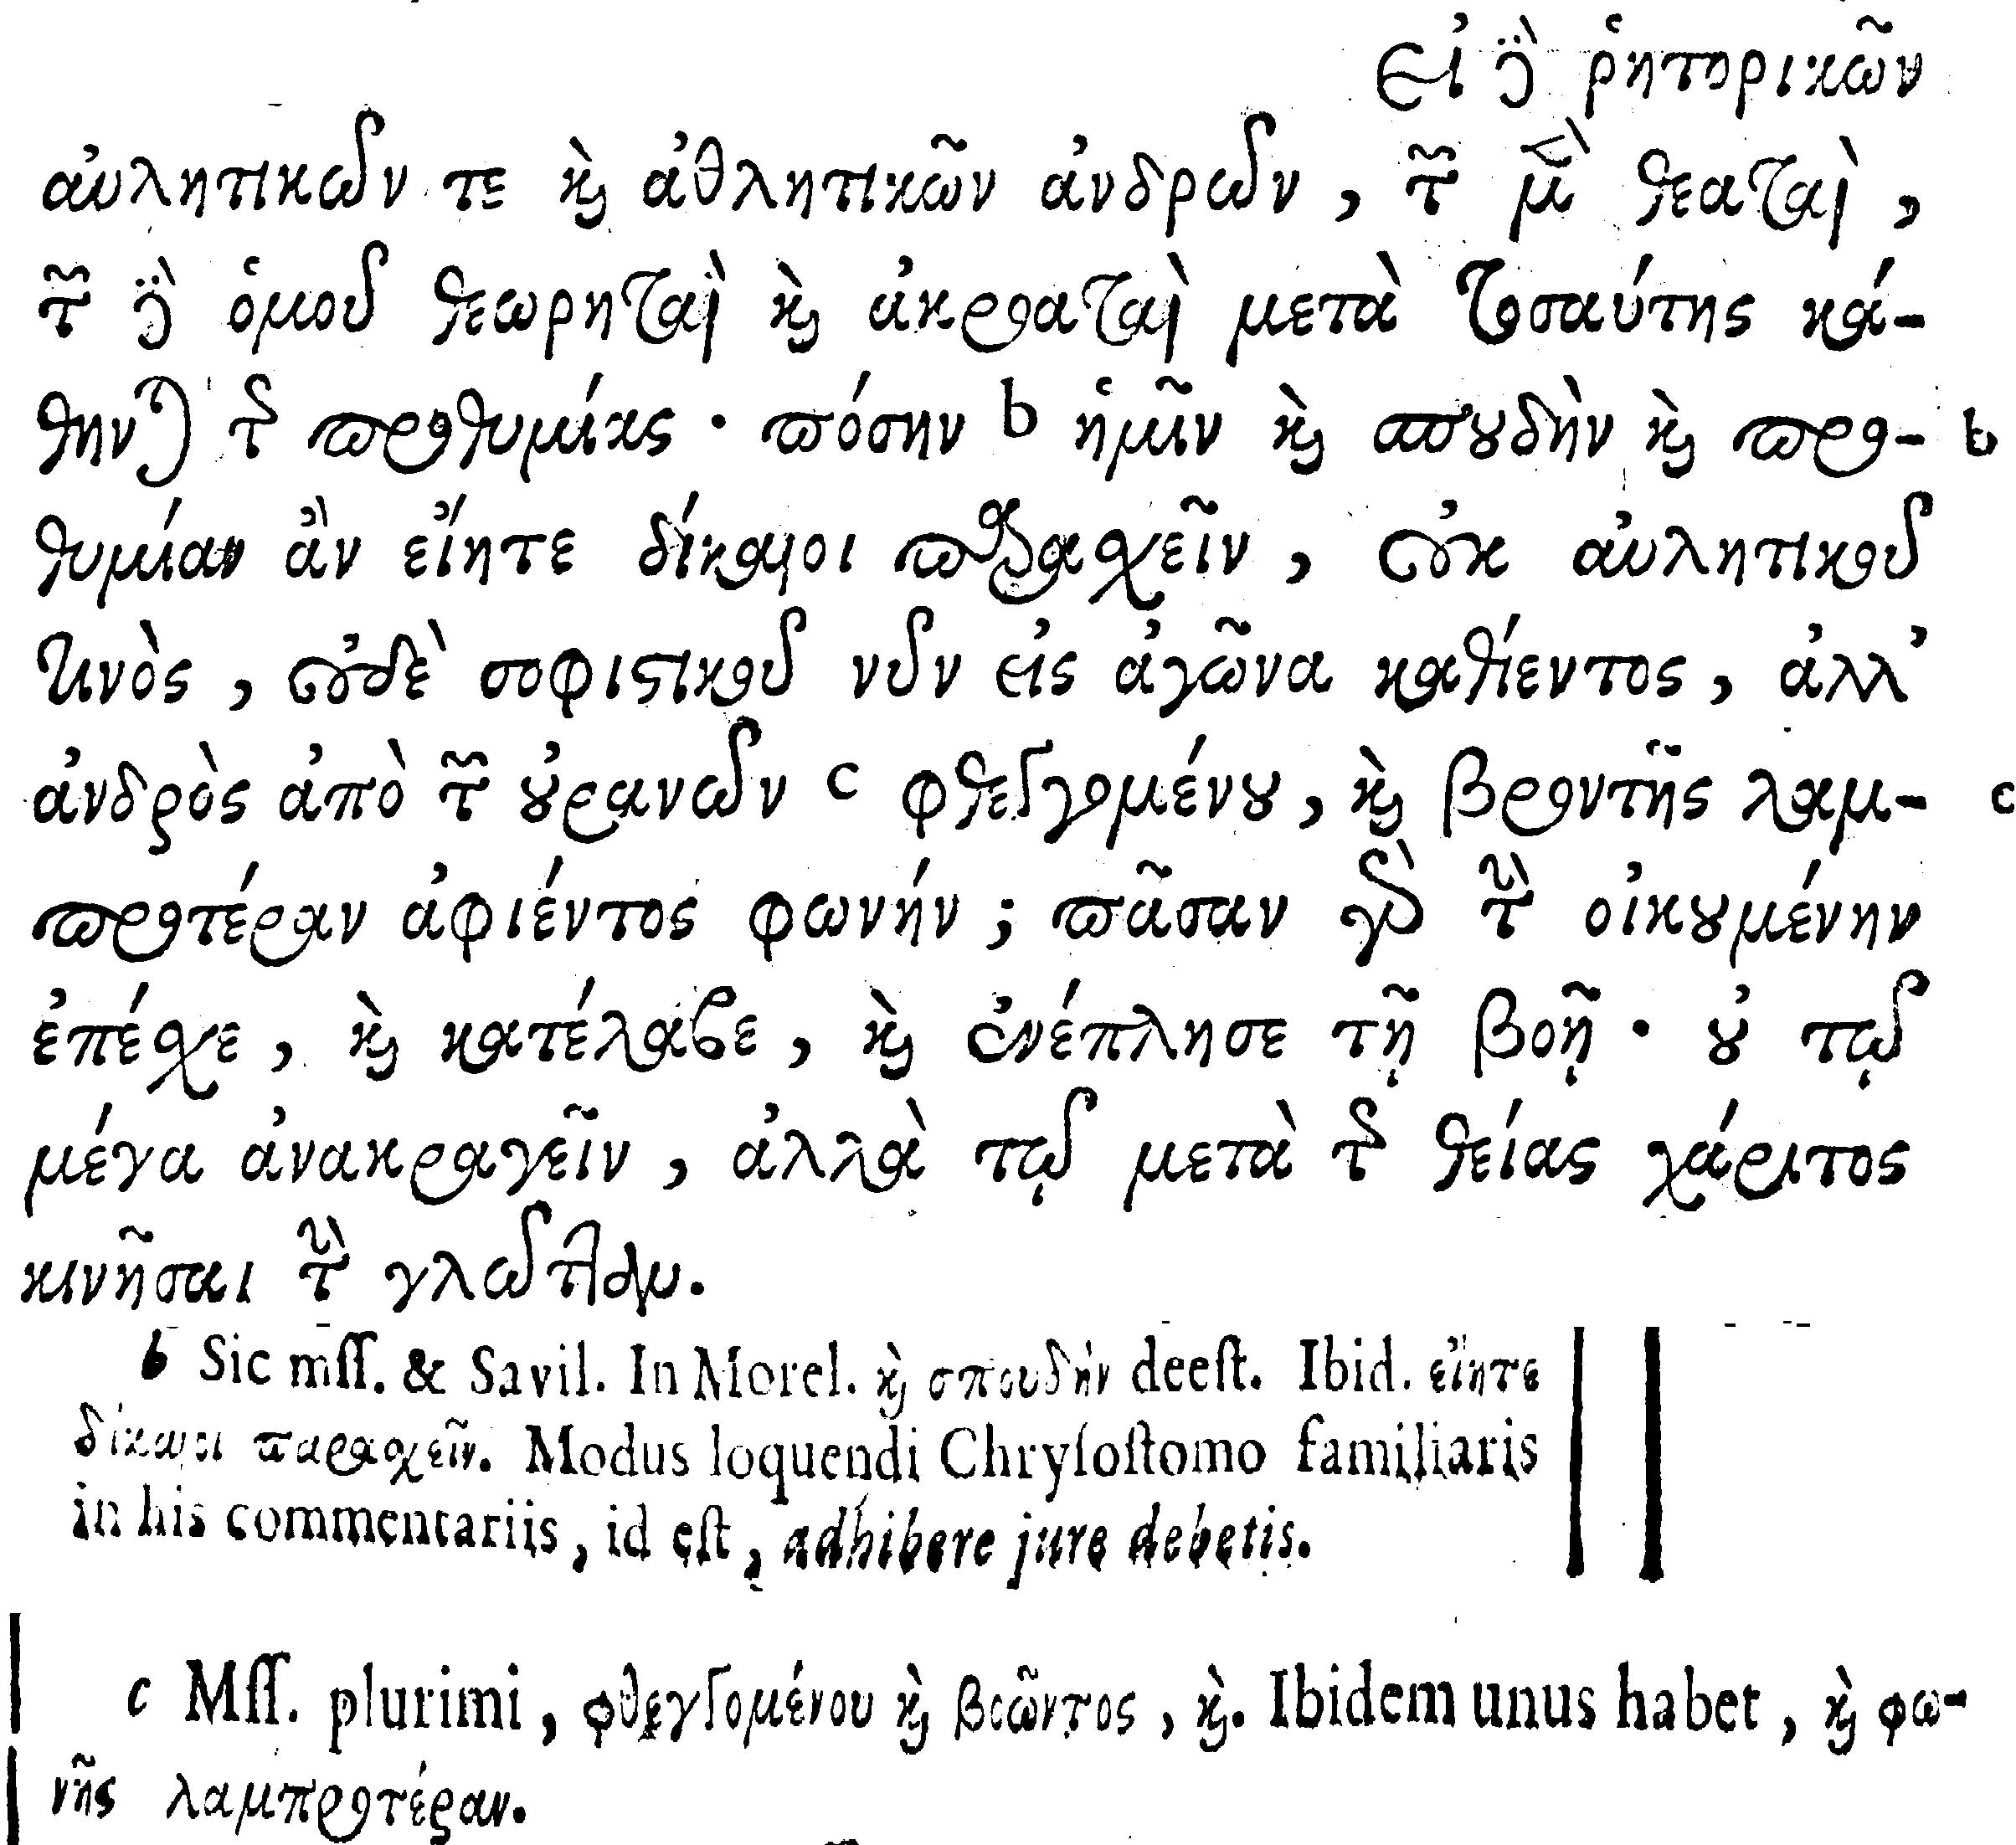 Εἰ δὲ ῥητορικῶν
αὐλητικῶν τε καὶ ἀθλητικῶν ἀνδρῶν, τῶν μὲν θεαταὶ,
τῶν δὲ ὁμοῦ θεωρηταὶ καὶ ἀκροαταὶ μετὰ τοσαύτης κά-
θηνται τῆς προθυμίας· πόσην b ἡμῖν καὶ σπουδὴν καὶ προ- b
θυμίαν ἂν εἴητε δίκαιοι παρασχεῖν, οὐκ αὐλητικοῦ
τινὸς, οὐδὲ σοφιστικοῦ νῦν εἰς ἀγῶνα καθίεντος, ἀλλ᾽
ἀνδρὸς ἀπὸ τῶν οὐρανῶν c φθεγγομένου, καὶ βροντῆς λαμ- c
προτέραν ἀφιέντος φωνήν; πᾶσαν γὰρ τὴν οἰκουμένην
ἐπέσχε, καὶ κατέλαβε, καὶ ἐνέπλησε τῇ βοῇ· οὐ τῷ
μέγα ἀνακραγεῖν, ἀλλὰ τῷ μετὰ τῆς θείας χάριτος
κινῆσαι τὴν γλῶτταν.
b Sic mſſ. & Savil. In Morel. καὶ σπουδὴν deeſt. Ibid. εἴητε
δίκαιοι παρασχεῖν. Modus loquendi Chryſoſtomo familiaris
in his commentariis, id eſt, adhibere jure debetis.
c Mſſ. plurimi, φθεγγομένου καὶ βοῶντος, καὶ. Ibidem unus habet, καὶ φω-
νῆς λαμπροτέραν.